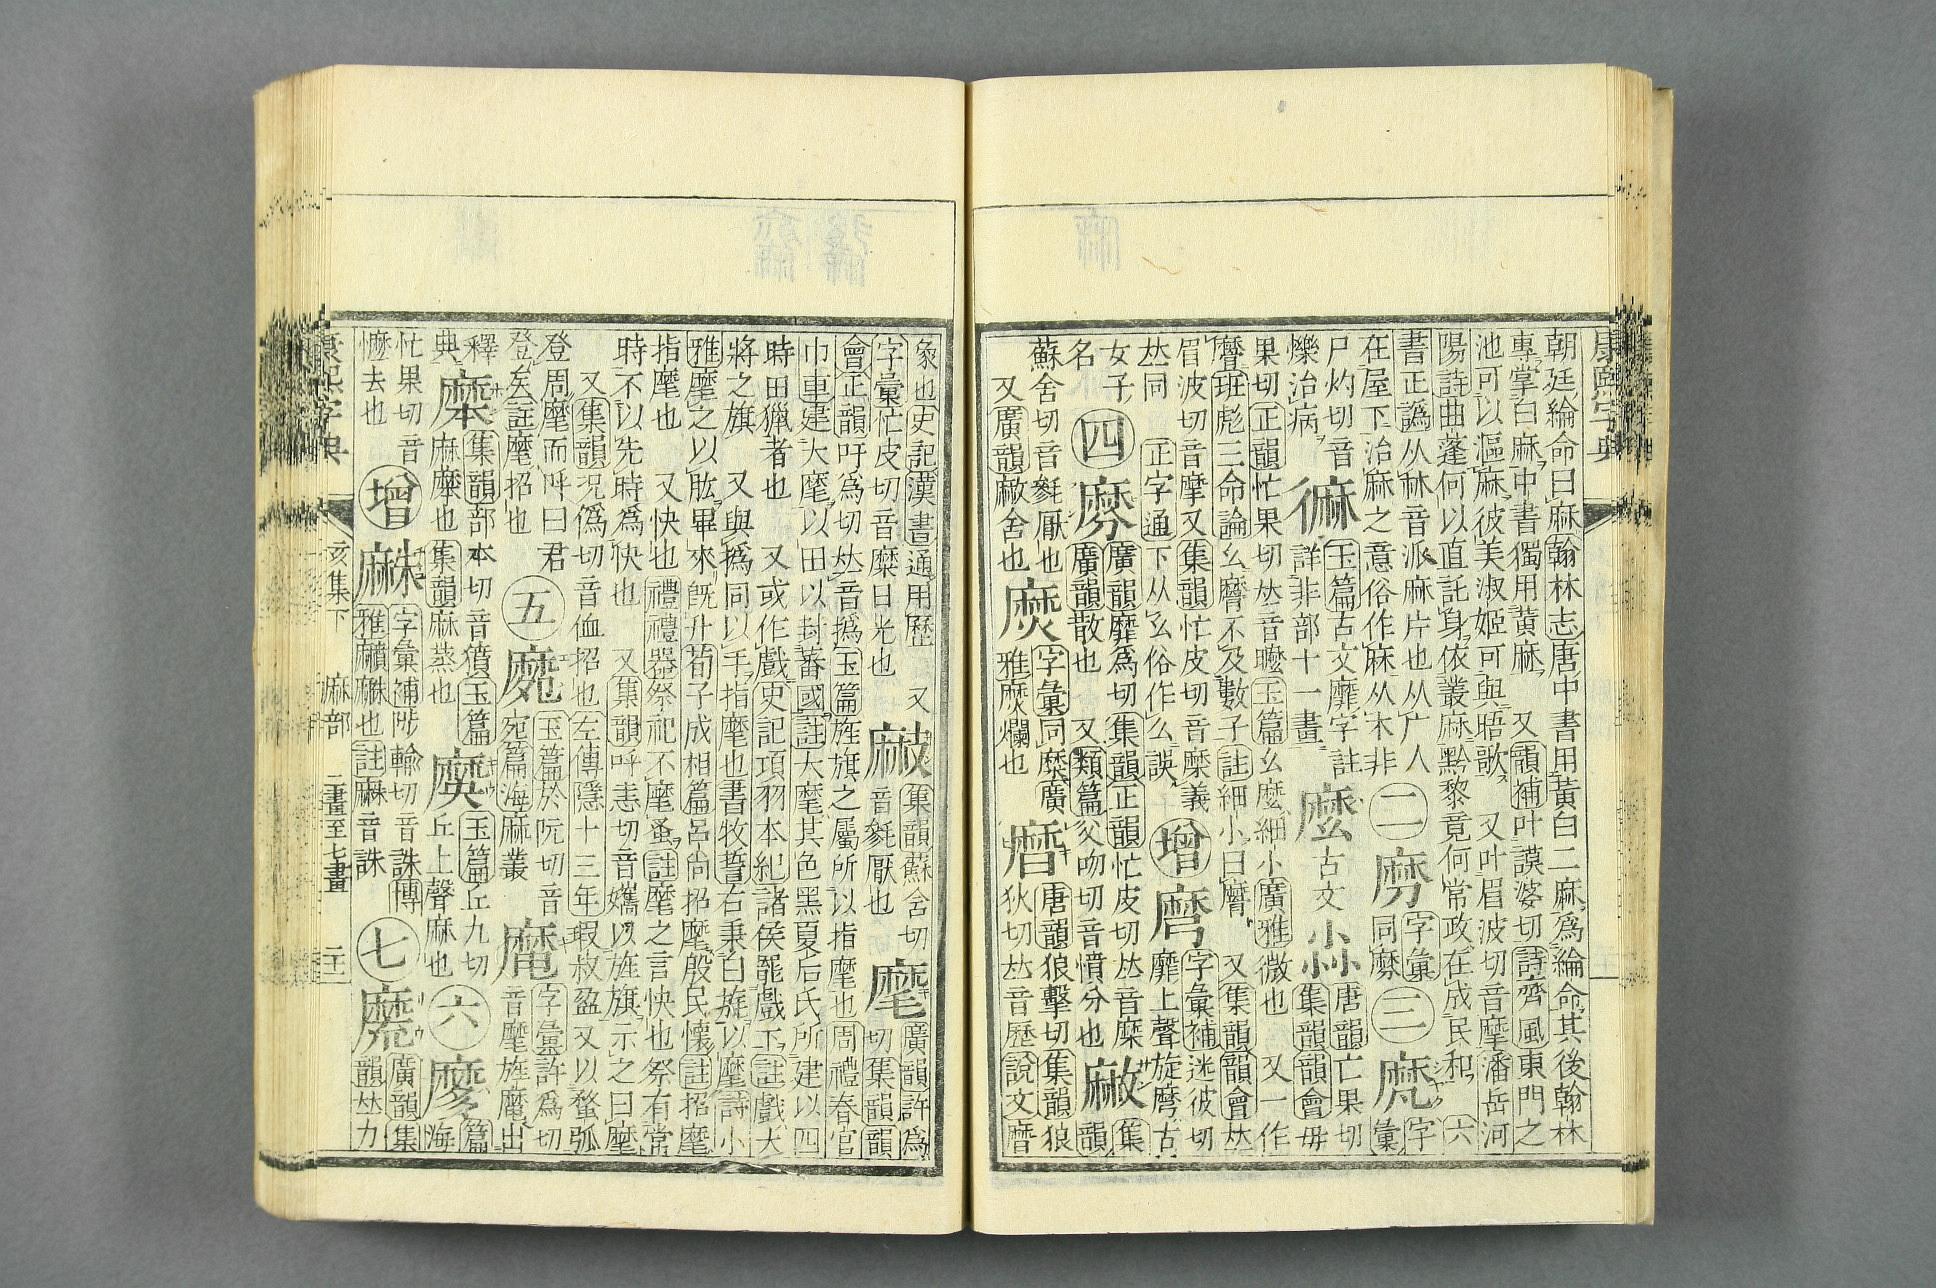 康熙字典
朝廷綸命曰麻翰林志唐中書用黃白二麻爲綸命其後翰林
專掌白麻中書獨用黃麻 又韻補叶謨婆切詩齊風東門之
池可以漚麻彼美淑姬可與晤歌 又叶眉波切音摩潘岳河
陽詩曲蓬何以直託身依叢麻黔黎竟何常政在成民和 六
書正譌从𣏟音派麻片也从广人
在屋下治麻之意俗作麻从木非
二
字彙
同
三
字
彙
尸灼切音
爍治病
玉篇古文靡字註
詳非部十一畫
麼
古文
唐韻亡果切
集韻韻會毋
果切正韻忙果切𠀤音 玉篇幺麼細小廣雅微也 又一作
麿班彪王命論幺麿不及數子註細小曰麿 又集韻韻會𠀤
眉波切音摩又集韻忙皮切音糜義
𠀤同 正字通下从幺俗作么誤
增
字彙補迷彼切
靡上聲旋 古
女子
名
四
廣韻靡爲切集韻正韻忙皮切𠀤音糜
廣韻散也 又類篇父吻切音憤分也
集
韻
蘇舍切音毿厭也
又廣韻 舍也
字彙同糜廣
雅 爛也
唐韻狼擊切集韻狼
狄切𠀤音歷說文
象也史記漢書通用歷 又
字彙忙皮切音糜日光也
集韻蘇舍切
音毿厭也
麾
廣韻許爲
切集韻韻
會正韻吁爲切𠀤音撝玉篇旌旗之屬所以指麾也周禮春官
巾車建大麾以田以封蕃國註大麾其色黑夏后氏所建以四
時田獵者也 又或作戲史記項羽本紀諸侯罷戲下註戲大
將之旗 又與撝同以手指麾也書牧誓右秉白旄以麾詩小
雅麾之以肱畢來旣升荀子成相篇呂尚招麾殷民懷註招麾
指麾也 又快也禮禮器祭祀不麾蚤註麾之言快也祭有常
時不以先時爲快也 又集韻呼恚切音孈以旌旗示之曰麾
又集韻況僞切音侐招也左傳隱十三年瑕叔盈又以蝥弧
登周麾而呼曰君
登矣註麾招也
五
玉篇於阮切音
宛篇海麻叢
字彙許爲切
音麾旌麾出
釋
典
集韻部本切音獖玉篇
麻 也集韻麻蒸也
玉篇丘九切
丘上聲麻也
六
篇
海
忙果切音
懡去也
增
字彙補陟輸切音誅博
雅 也註 音誅
七
廣韻集
韻𠀤力
康熙字典 亥集下 麻部 二畫至七畫 二十一